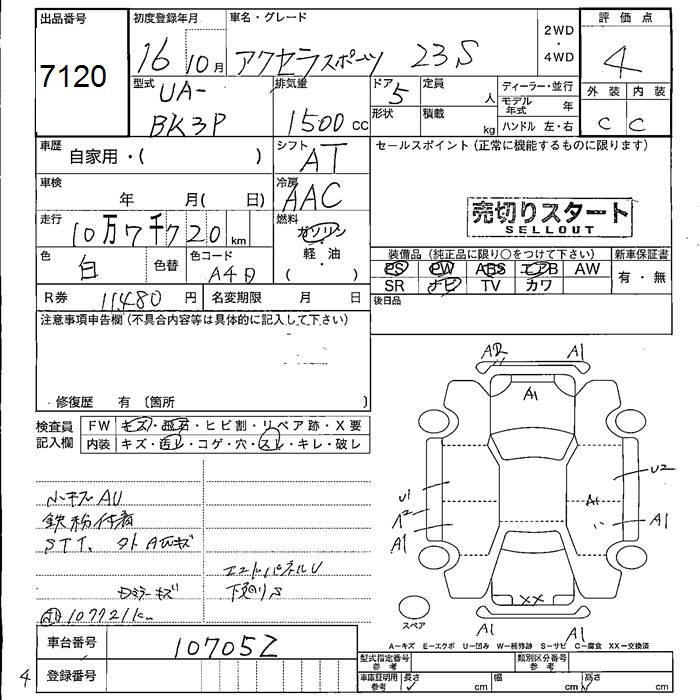 出品番号
7120
初度登録年月
16 10月
車名・グレード
アクセラスポーツ 23S
2WD
・
4WD
評価点
4
外装 内装
C C
型式
UA-
BK3P
排気量
1500cc
ドア
5
形状
定員
人
積載
kg
ディーラー・並行
モデル年式 年
ハンドル 左・右
車歴
自家用・( )
シフト
AT
セールスポイント(正常に機能するものに限ります)
車検
年 月( 日)
冷房
AAC
売切りスタート
SELLOUT
走行
10万7千720km
燃料
ガソリン
・
軽・油
( )
色
白
色替
色コード
A4D
装備品(純正品に限り〇をつけて下さい)
新車保証書
PS PW ABS エアB AW
有・無
SR ナビ TV カワ
R券 11480円
名変期限 月 日
後日品
注意事項申告欄(不具合内容等は具体的に記入して下さい)
修復歴 有 〔箇所 〕
検査員
記入欄
FW キズ・飛石・ヒビ割・リペア跡・X要
内装 キズ・汚レ・コゲ・穴・スレ・キレ・破レ
小キズAU
鉄粉付着
107721km
エンドパネルU
下廻りS
車台番号
107052
登録番号
4
A2 A1
A1
U1
A2
A1
U2
A1
A1
XX
A1 A1
スペア
A-キズ E-エクボ U-凹み W-補修跡 S-サビ C-腐食 XX-交換済
型式指定番号
参考
類別区分番号
参考
車庫証明用
参考
長さ cm
幅 cm
高さ cm